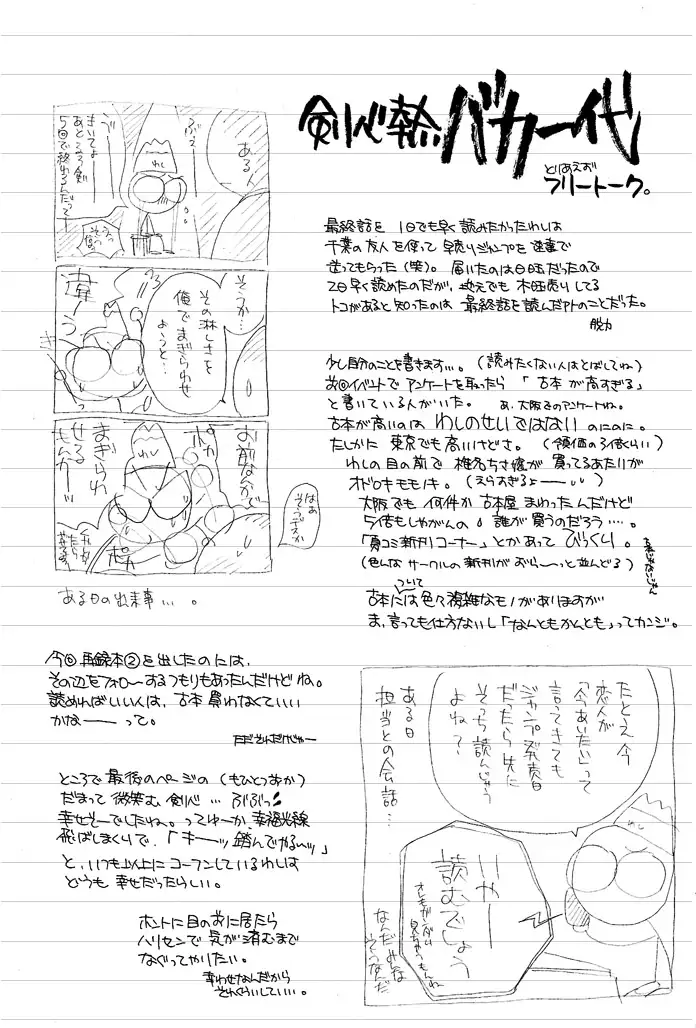 剣心熱バカ一代
とりあえず
フリートーク。
ある人
きいてよ
あと5回で
終わるんだってー
そうか…
その淋しさを
俺でまぎらわせ
ようと…
違ーう
お前なんかで
まぎらわ
せる
もんかーッ
ポカ
ポカ
はぁ
そうデスか
ある日の出来事…。
最終話を 1日でも早く読みたかったわしは
千葉の友人を使って早売りジャンプを速達で
送ってもらった(笑)。届いたのは日曜だったので
2日早く読めたのだが、地元でも木曜売りしてる
トコがあると知ったのは 最終話を読んだアトのことだった。
脱力
少し自分のことを書きます…。(読みたくない人はとばしてね)
前回イベントでアンケートを取ったら「古本が高すぎる」
と書いている人がいた。 あ、大阪でのアンケートね。
古本が高いのは わしのせいではない のにのに。
たしかに 東京でも高いけどさ。(領価の3倍くらい)
わしの目の前で 椎名ちさ様が 買ってるあたりが
オドロキモモノキ。(えらすぎるよーー)
大阪でも 何件か古本屋 まわったんだけど
5倍もしやがんの。誰が買うのだろう…。
「夏コミ新刊コーナー」とかあって びっくり。
(色んな サークルの新刊がおら〜っと並んどる)
古本には色々複雑なモノがありますが
ついて
ま、言っても仕方ないし「なんともかんとも」ってカンジ。
今回 再録本②を出したのには、
その辺をフォローするつもりもあったんだけどね。
読めればいい人は、古本買わなくていい
かなーー って。
ただそんだけじゃー
ところで最後のページの(もひとつおか)
だまって微笑む剣心… ぶぶっ!
幸せそーでしたね。ってゆーか、幸福光線
飛ばしまくりで、「キーッ踏んでやるーッ」
と、いつも以上にコーフンしているわしは
どうも 幸せだったらしい。
ホントに目の前に居たら
ハリセンで気が済むまで
なぐってやりたい。
幸わせなんだから
それくらいしていい…。
ある日
担当との会話…
たとえ今
恋人が
「今あいたい」って
言ってきても
ジャンプ発売日
だったら先に
そっち読んじゃう
よね?
いやー
読むでしょう
なんだみんな
そうなんだ